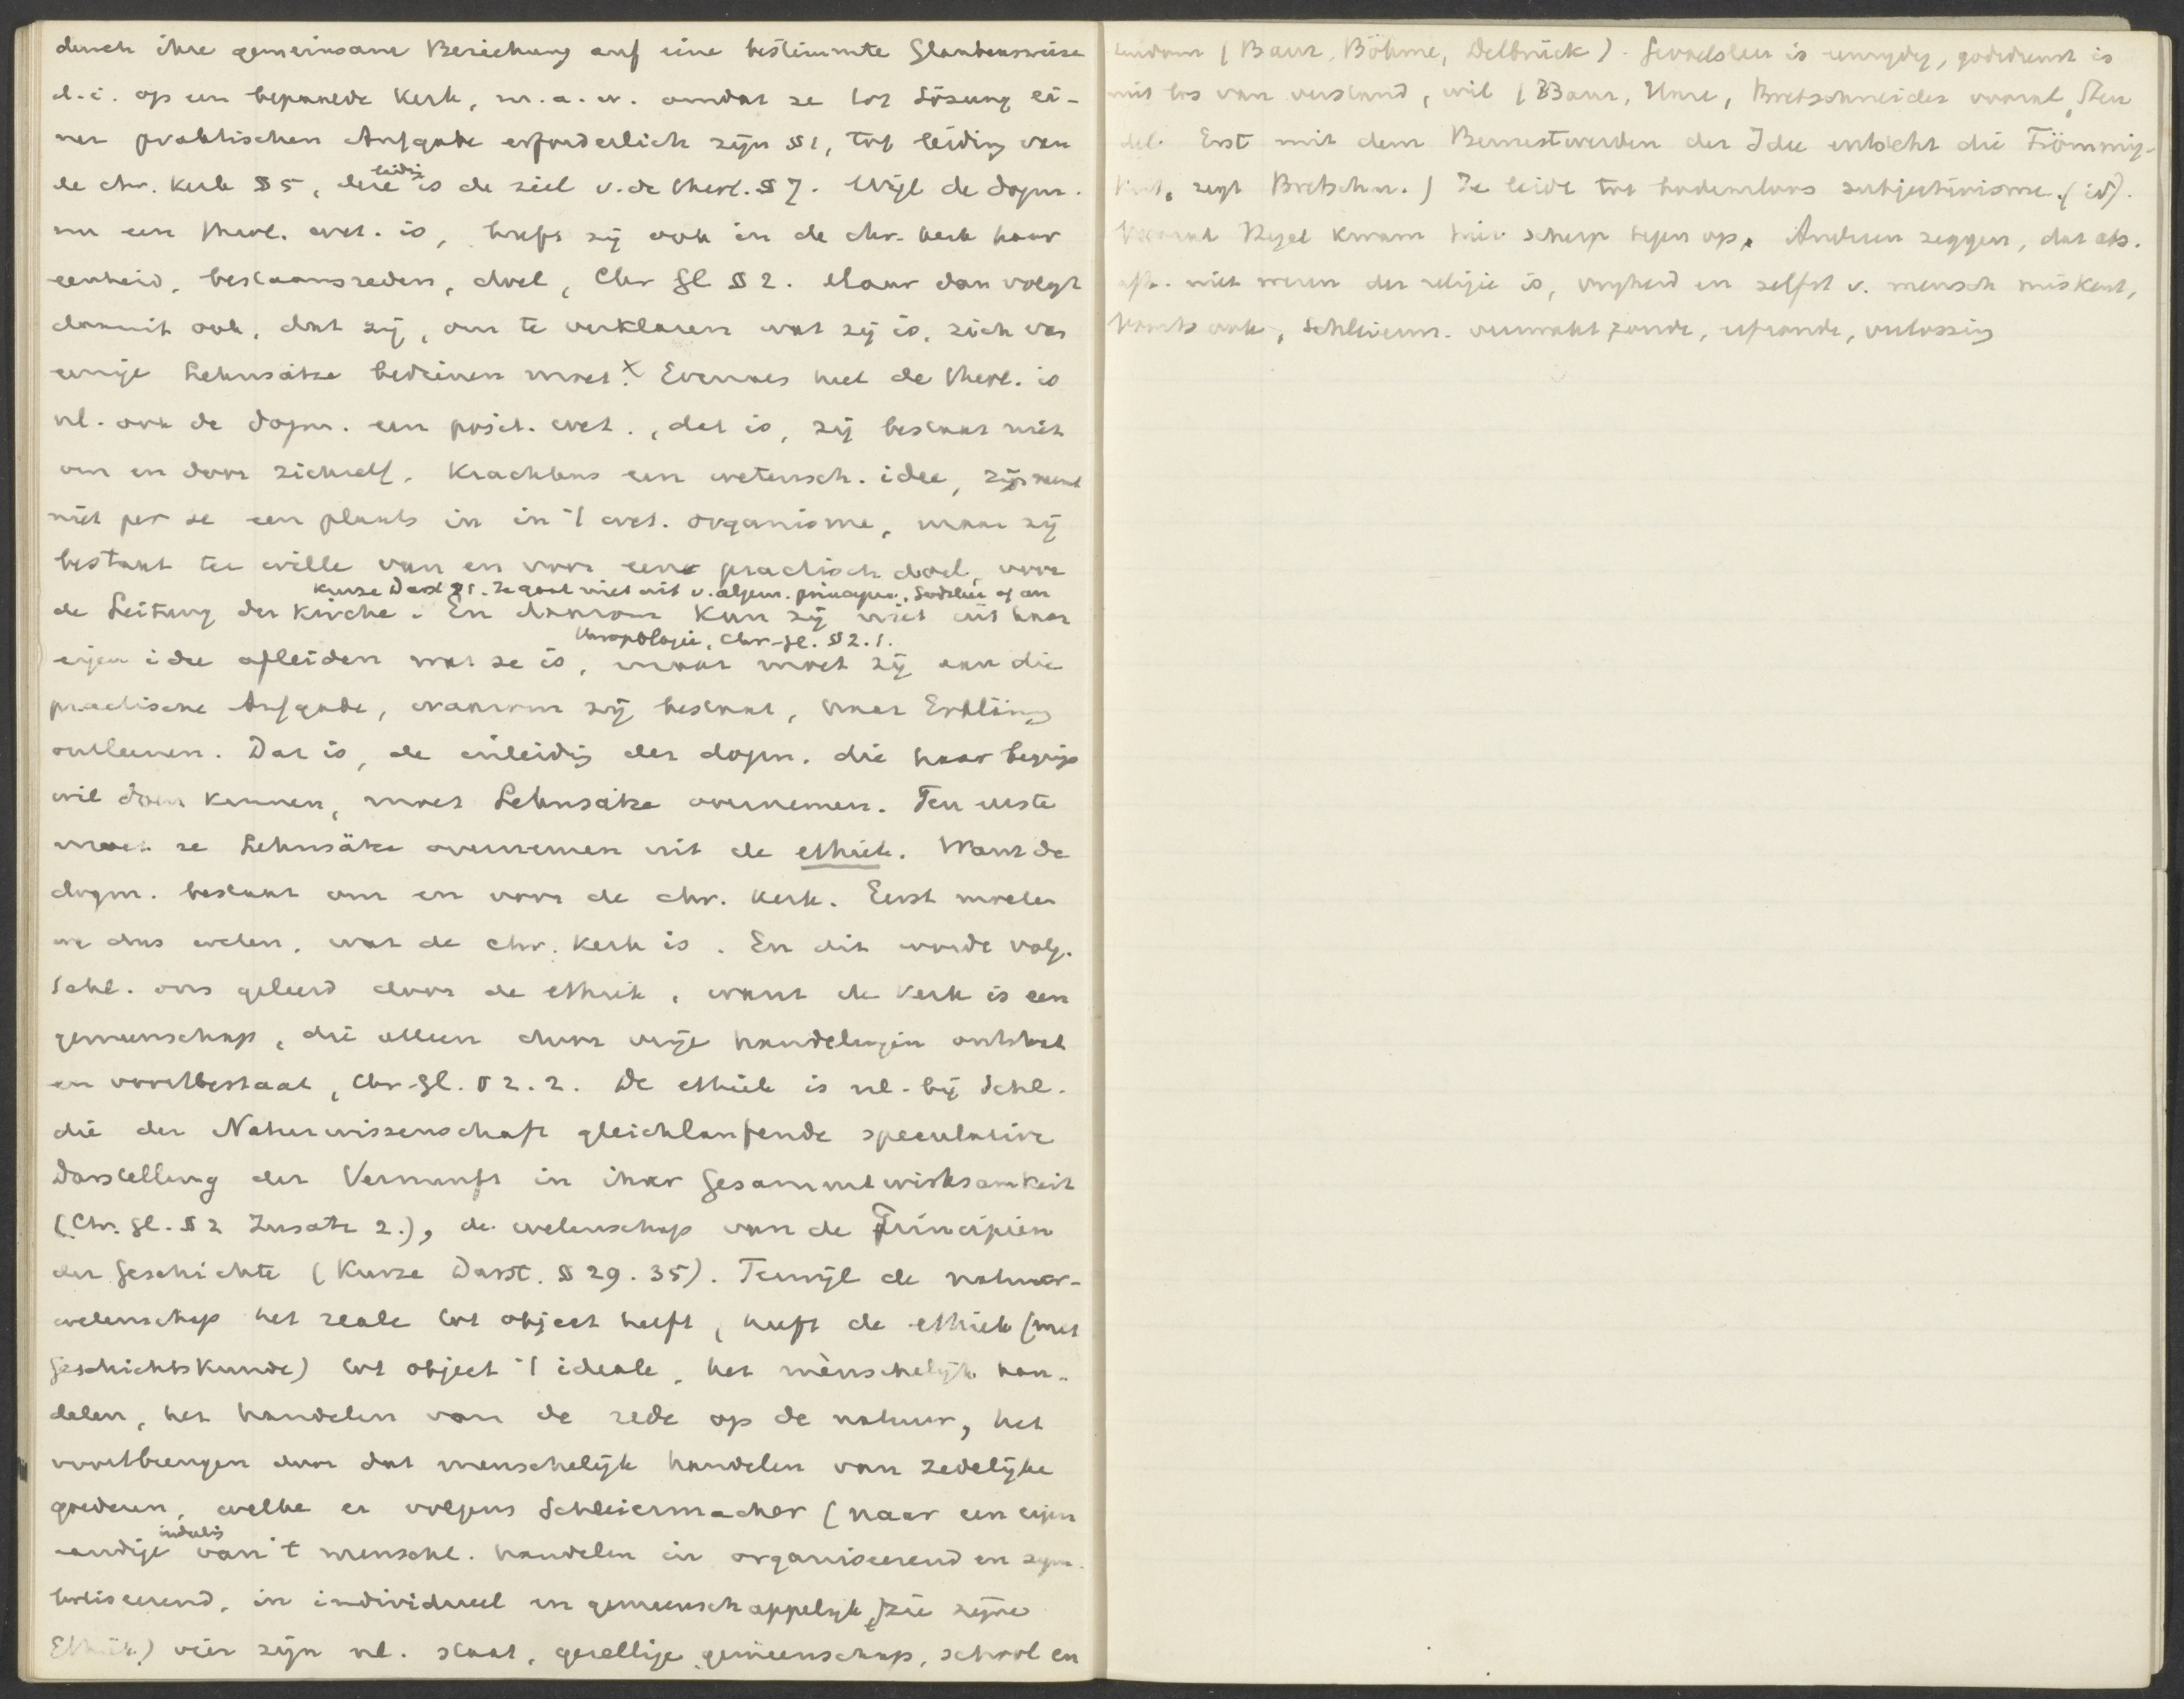 durch ihre gemeinsame Beziehung auf eine bestimmte Glaubensweise
d.i. op een bepaalde Kerk, m.a.w. omdat ze tot Lösung ei-
ner praktischen Aufgabe erforderlich zijn §1, tot leiding van
de chr. Kerk §5, deze leidg is de ziel v. de theol. §7. Wijl de dogm.
nu een theol. wet. is, heeft zij ook in de chr. kerk haar
eenheid, bestaansreden, doel, Chr Gl §2. Maar dan volgt
daaruit ook, dat zij, om te verklaren wat zij is, zich van
eenige Lehnsätze bedienen moet.x Evenals heel de theol. is
nl. ook de dogm. een posit. wet., dat is, zij bestaat niet
om en door zichzelf, krachtens een wetensch. idee, zij neemt
niet per se een plaats in in 't wet. organisme, maar zij
bestaat ter wille van en voor een practisch doel, voor
Kurze Darst §1. Ze gaat niet uit v. algem. principes, Godsleer of an
de Leitung der Kirche. En daarom kan zij niet uit haar
thropologie, Chr-Gl. §2.1.
eigen idee afleiden wat ze is, maar moet zij aan die
practische Aufgabe, waarom zij bestaat, haar Erklärung
ontleenen. Dat is, de inleidig der dogm. die haar begrip
wil doen kennen, moet Lehnsätze overnemen. Ten eerste
moet ze Lehnsätze overnemen uit de ethiek. Want de
dogm. bestaat om en voor de chr. kerk. Eerst moeten
we dus weten, wat de chr. kerk is. En dit wordt volg.
Schl. ons geleerd door de ethiek, want de kerk is een
gemeenschap, die alleen door vrije handelingen ontstaat
en voortbestaat, Chr-Gl. §2.2. De ethiek is nl. bij Schl.
die der Naturwissenschaft gleichlaufende speculative
Darstellung der Vernunft in ihrer Gesammtwirksamkeit
(Chr. Gl. §2 Zusatz 2.), de wetenschap van de Principien
der Geschichte (Kurze Darst. §29. 35). Terwijl de natuur-
wetenschap het reale tot object heeft, heeft de ethiek (met
Geschichtskunde) tot object 't ideale, het mènschelijk han-
delen, het handelen van de rede op de natuur, het
voortbrengen door dat menschelijk handelen van zedelijke
goederen, welke er volgens Schleiermacher (naar een eigen
aardige indeelig van 't menschl. handelen in organiseerend en sym-
boliseerend, in individueel en gemeenschappelijk, zie zijne
Ethik) vier zijn nl. staat, gezellige gemeenschap, school en
(Baur, Böhme, Delbrück). Godsleer is eenzijdig, godsdienst is
niet los van verstand, wil (Baur, Bretschneider vooral, Steu
del. Erst mit dem Bewustwerden der Idee entsteht die Frömmig-
keit, zegt Bretschn.) Ze leidt tot bodemloos subjectivisme. (id).
Vooral Hegel kwam hier scherp tegen op. Anderen zeggen, dat abs.
afh. niet wezen der religie is, vrijheid en zelfst v. mensch miskent,
Schleierm. verzwakt zonde, verlossing